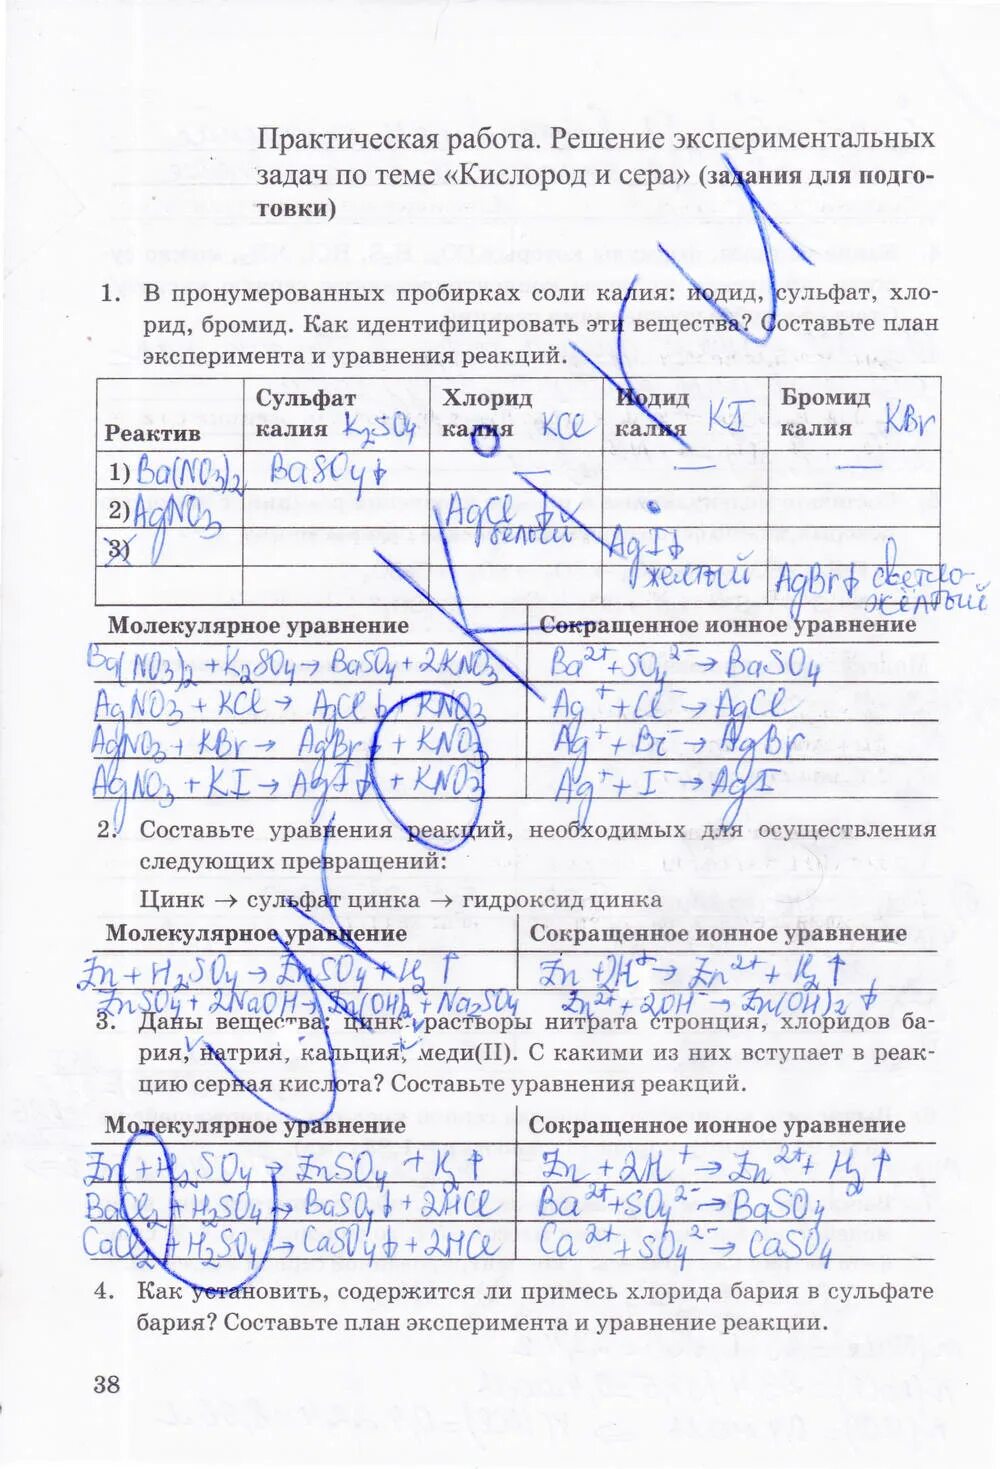 Практическая работа. Решение экспериментальных
задач по теме «Кислород и сера» (задания для подго-
товки)
1. В пронумерованных пробирках соли калия: иодид, сульфат, хло-
рид, бромид. Как идентифицировать эти вещества? Составьте план
эксперимента и уравнения реакций.
Реактив Сульфат калия K₂SO₄ Хлорид калия KCl Иодид калия KI Бромид калия KBr
1) Ba(NO₃)₂ BaSO₄↓ — — —
2) AgNO₃ AgCl↓ белый
3) AgI↓ жёлтый
AgBr↓ светло-жёлтый
Молекулярное уравнение Сокращенное ионное уравнение
Ba(NO₃)₂ + K₂SO₄ → BaSO₄ + 2KNO₃ Ba²⁺ + SO₄²⁻ → BaSO₄
AgNO₃ + KCl → AgCl↓ + KNO₃ Ag⁺ + Cl⁻ → AgCl
AgNO₃ + KBr → AgBr↓ + KNO₃ Ag⁺ + Bi⁻ → AgBr
AgNO₃ + KI → AgI↓ + KNO₃ Ag⁺ + I⁻ → AgI
2. Составьте уравнения реакций, необходимых для осуществления
следующих превращений:
Цинк → сульфат цинка → гидроксид цинка
Молекулярное уравнение Сокращенное ионное уравнение
Zn + H₂SO₄ → ZnSO₄ + H₂↑ Zn + 2H⁺ → Zn²⁺ + H₂↑
ZnSO₄ + 2NaOH → Zn(OH)₂ + Na₂SO₄ Zn²⁺ + 2OH⁻ → Zn(OH)₂↓
3. Даны вещества: цинк, растворы нитрата стронция, хлоридов ба-
рия, натрия, кальция, меди(II). С какими из них вступает в реак-
цию серная кислота? Составьте уравнения реакций.
Молекулярное уравнение Сокращенное ионное уравнение
Zn + H₂SO₄ → ZnSO₄ + H₂↑ Zn + 2H⁺ → Zn²⁺ + H₂↑
BaCl₂ + H₂SO₄ → BaSO₄↓ + 2HCl Ba²⁺ + SO₄²⁻ → BaSO₄
CaCl₂ + H₂SO₄ → CaSO₄↓ + 2HCl Ca²⁺ + SO₄²⁻ → CaSO₄
4. Как установить, содержится ли примесь хлорида бария в сульфате
бария? Составьте план эксперимента и уравнение реакции.
38